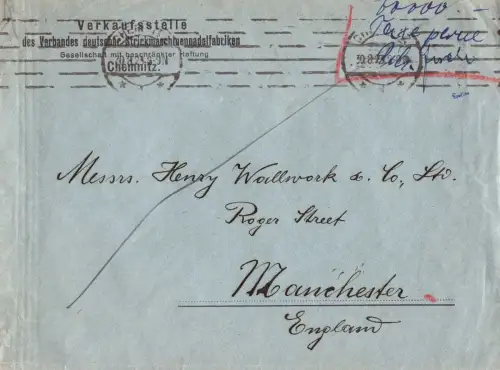 60000.-
Verkaufsstelle
Taxe perçue
des Verbandes deutscher Strickmaschinennadelfabriken
Gesellschaft mit beschränkter Haftung
Chemnitz.
30.8.23
30.8.23
Messrs. Henry Wallwork & Co., Ltd.
Roger Street
Manchester
England